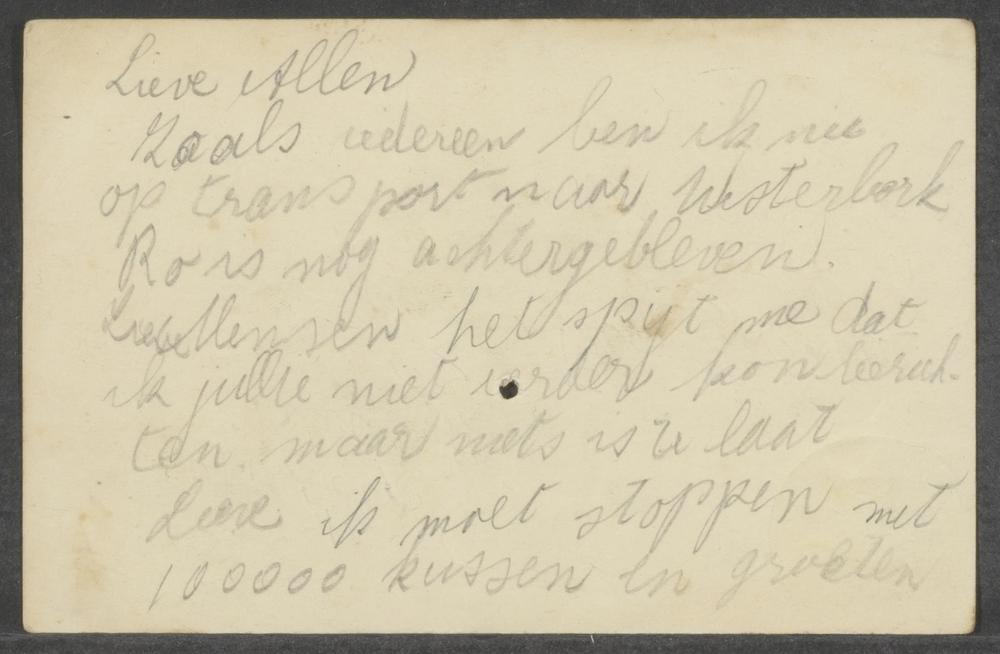 Lieve Allen
Zoals iedereen ben ik nu
op transport naar Westerbork
Ro is nog achtergebleven.
Lieve Mensen het spijt me dat
ik jullie niet eerder kon berich-
ten maar niets is te laat
Lieve ik moet stoppen met
100000 kussen en groeten